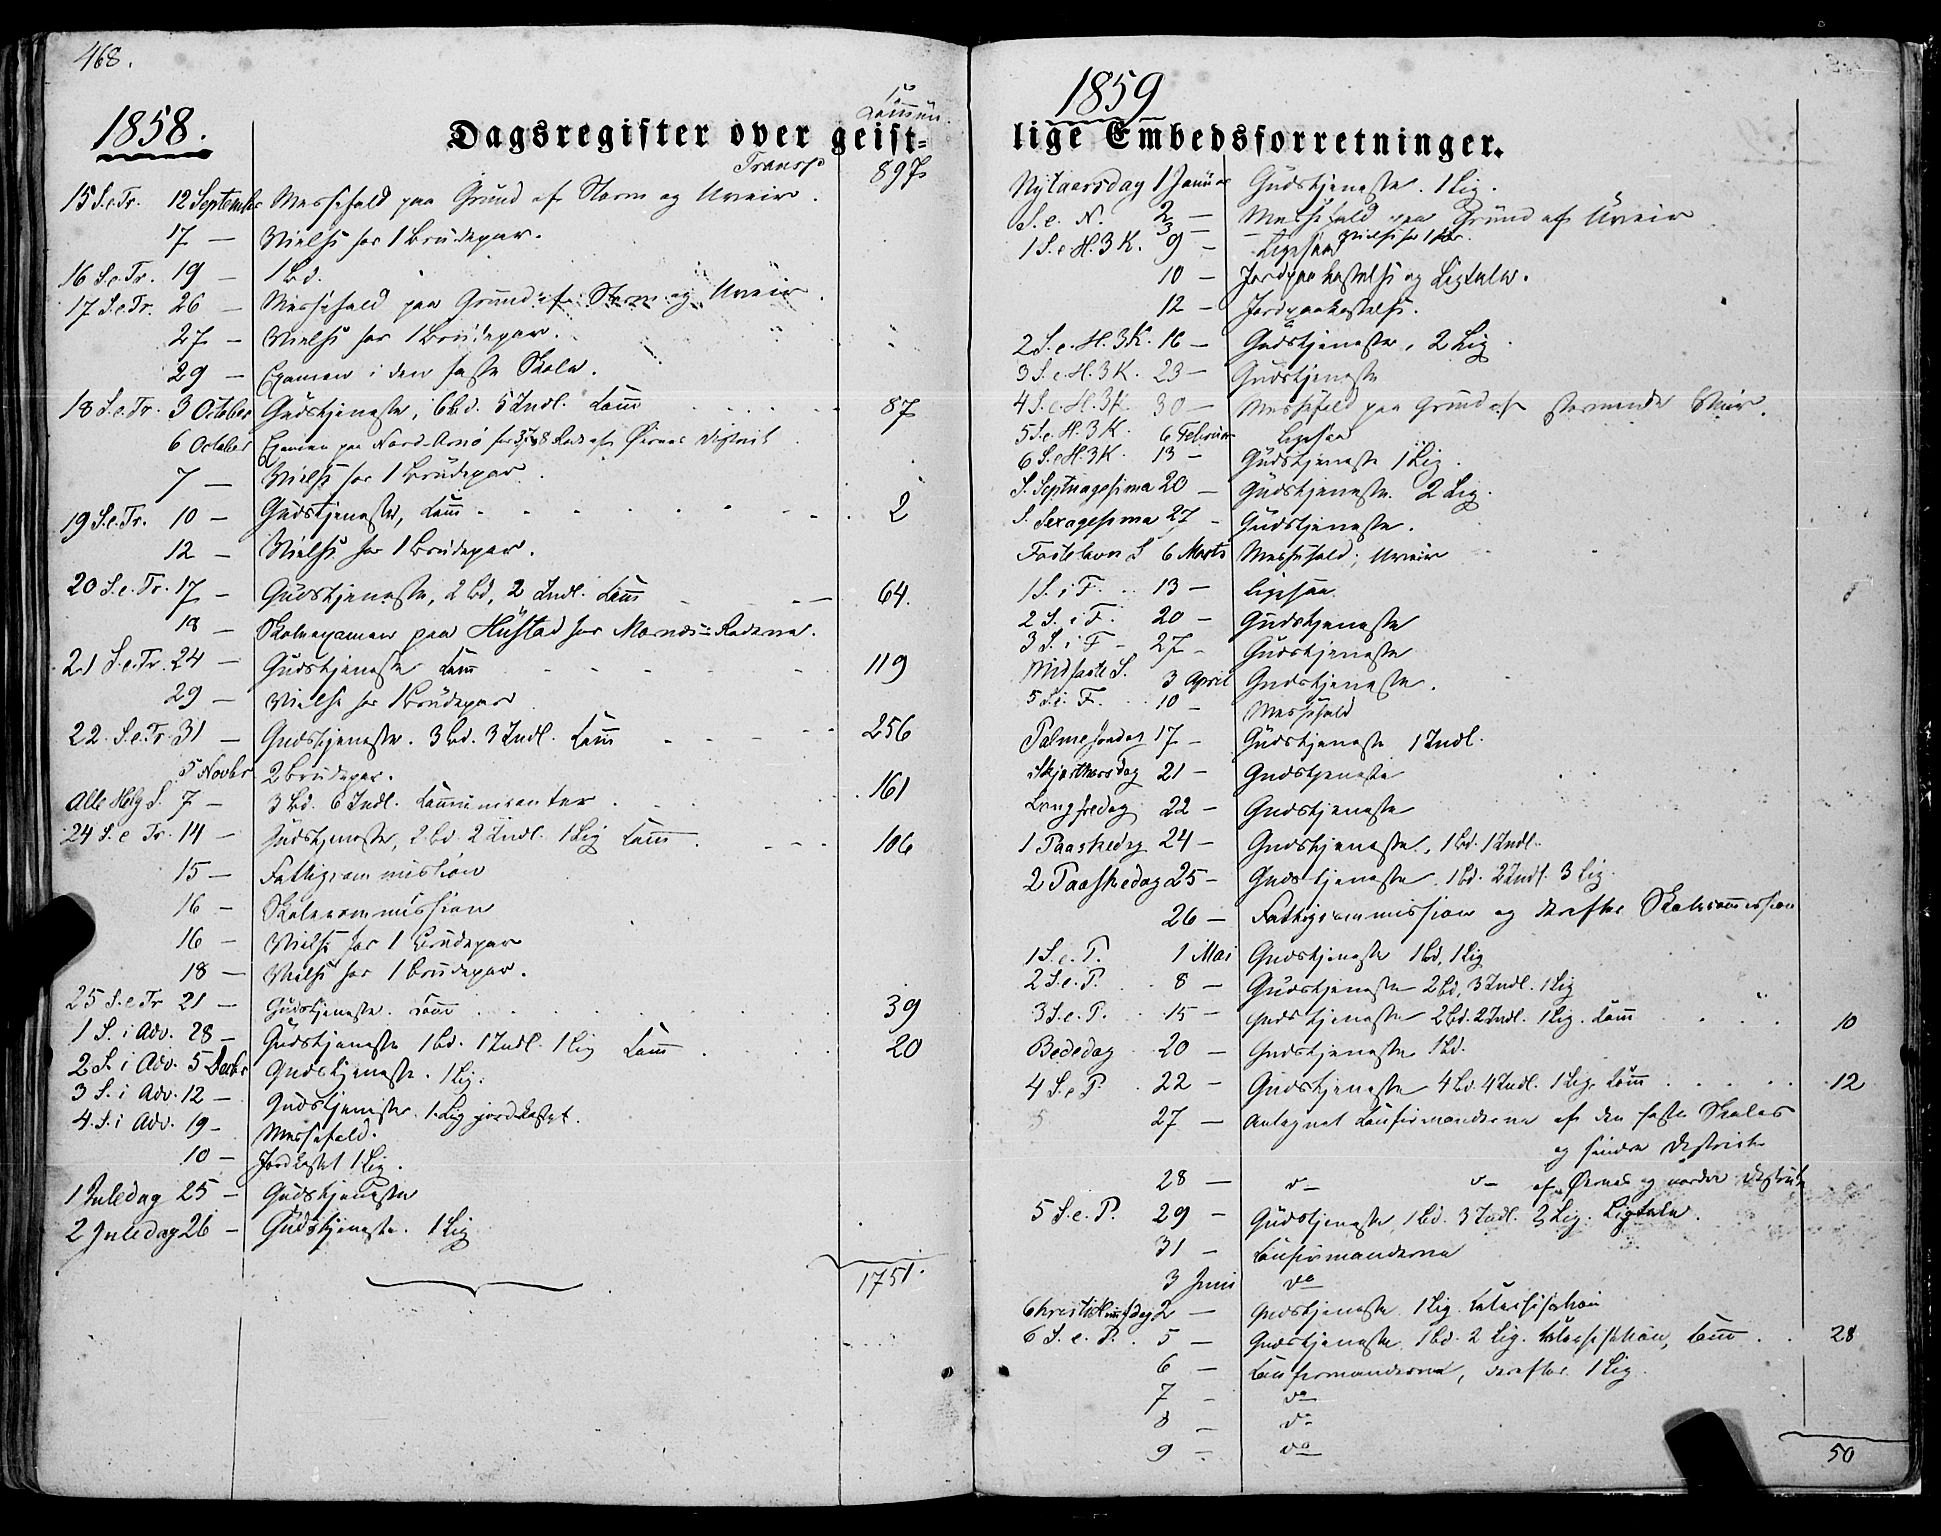 468.
1858.
Dagsregister over geist-
Commun.
Transp 897
15 S. e. Tr. 12 September Messefald paa Grund af Storm og Uveir.
17 — Vielse for 1 Brudepar.
16 S. e. Tr. 19 — 1 Bd.
17 S. e. Tr. 26 — Messefald paa Grund af Storm og Uveir.
27 — Vielse for 1 Brudepar.
29 — Examen i den faste Skole.
18 S. e. Tr. 3 October Gudstjeneste, 6 Bd. 5 Indl. Com̅ 87
6 October Examen paa Nord-Arnö for Ørnes District
7 — Vielse for 1 Brudepar
19 S. e. Tr. 10 — Gudstjeneste, Com̅ 2
12 — Vielse for 1 Brudepar.
20 S. e. Tr. 17 — Gudstjeneste, 2 Bd, 2 Indl. Com̅ 64.
18 — Skoleexamen paa Hustad for Mornæs-Roderne.
21 S. e. Tr. 24 — Gudstjeneste Com̅ 119
29 — Vielse for 1 Brudepar
22 S. e. Tr. 31 — Gudstjeneste. 3 Bd. 3 Indl. Com̅ 256
5 Novbr 2 Brudepar.
Alle Helg S. 7 — 3 Bd. 6 Indl. Communicanter 161
24 S. e Tr. 14 — Gudstjeneste, 2 Bd. 2 Indl. 1 Lig Com̅ 106
15 — Fattigcommission
16 — Skolecommission
16 — Vielse for 1 Brudepar
18 — Vielse for 1 Brudepar.
25 S. e Tr 21 — Gudstjeneste. Com̅ 39
1 S. i Adv. 28 — Gudstjeneste 1 Bd. 1 Indl. 1 Lig Com̅ 20
2 S. i Adv. 5 Decbr Gudstjeneste. 1 Lig.
3 S. i Adv. 12 — Gudstjeneste. 1 Lig jordkastet.
4 S. i Adv. 19 — Messefald.
10 — Jordkastet 1 Lig.
1 Juledag 25 — Gudstjeneste
2 Juledag 26 — Gudstjeneste. 1 Lig
1751.
1859
lige Embedsforretninger.
Nytaarsdag 1 Januar Gudstjeneste. 1 Lig.
S. e. N. 2 — Messefald paa Grund af Uveir
3 — Vielse for 1 Par.
1 S. e H. 3 K. 9 — Ligesaa
10 — Jordpaakastelse og Ligtale.
12 — Jordpaakastelse.
2 S. e. H. 3 K. 16 — Gudstjeneste, 2 Lig
3 S. e H. 3 K. 23 — Gudstjeneste
4 S. e H. 3 K. 30 — Messefald paa Grund af stormende Veir.
5 S. e. H. 3 K. 6 Februar Ligesaa
6 S. e H. 3 K. 13 — Gudstjeneste 1 Lig.
S. Septuagesima 20 — Gudstjeneste. 2 Lig.
S. Sexagesima 27 — Gudstjeneste.
Fastelavn S 6 Marts Messefald, Uveir
1 S. i F. 13 — Ligesaa.
2 S. i F. 20 — Gudstjeneste
3 S. i F. 27 — Gudstjeneste
Midfaste S. 3 April Gudstjeneste.
5 S. i. F. 10 — Messefald
Palmesøndag 17 — Gudstjeneste 1 Indl.
Skjærthorsdag 21 — Gudstjeneste
Langfredag 22 — Gudstjeneste
1 Paaskedag 24 — Gudstjeneste, 1 Bd. 1 Indl.
2 Paaskedag 25 — Gudstjeneste. 1 Bd. 2 Indl. 3 Lig.
26 — Fattigcommission og derefter Skolecom̅ission
1 S. e. P. 1 Mai Gudstjeneste 1 Bd, 1 Lig
2 S. e. P. 8 — Gudstjeneste 2 Bd, 3 Indl. 1 Lig
3 S. e. P. 15 — Gudstjeneste 2 Bd. 2 Indl. 1 Lig. Com̅ 10
Bededag 20 — Gudstjeneste 1 Bd.
4 S. e P. 22 — Gudstjeneste 4 Bd. 4 Indl. 1 Lig. Com̅ 12
27 — Antegnet Confirmanderne af den faste Skoles
og søndre District
28 — do do af Ørnes og nordre District
5 S. e. P. 29 — Gudstjeneste, 1 Bd. 3 Indl. 3 Lig. Ligtale.
31 — Confirmanderne
3 Juni do
Christi Himfdag 2 — Gudstjeneste. 1 Lig. Catechisation
6 S. e. P. 5 — Gudstjeneste. 1 Bd. 2 Lig. Catechisation, Com̅ 28
6 — Confirmanderne, derefter 1 Lig
7 — do
8 — do
9 — do
50